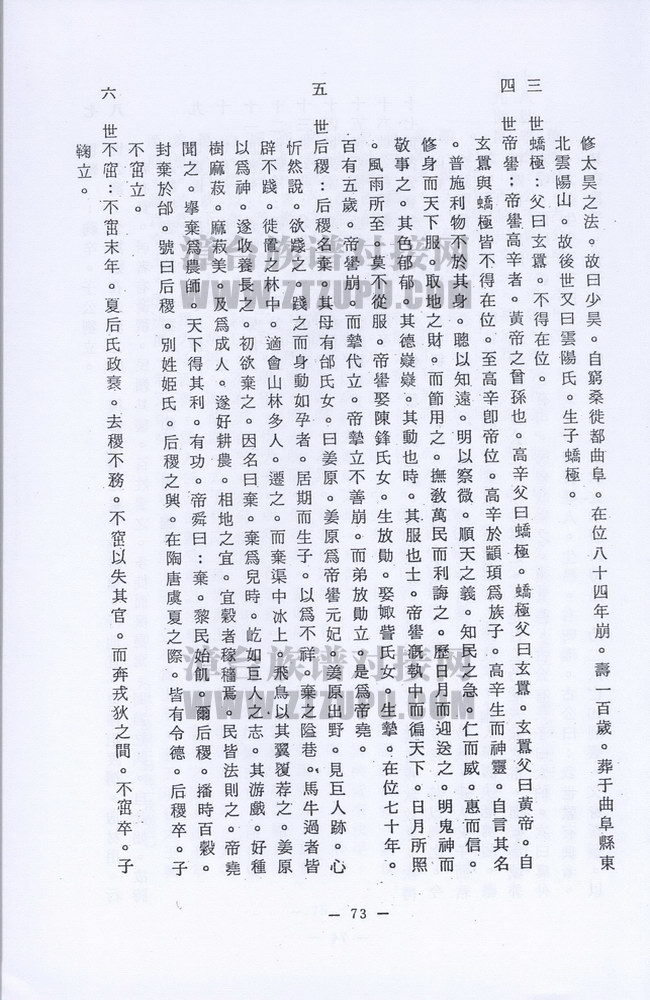 修太昊之法。故曰少昊。自窮桑徙都曲阜。在位八十四年崩。壽一百歲。葬于曲阜縣東
北雲陽山。故後世又曰雲陽氏。生子蟜極。
三　世蟜極：父曰玄囂。不得在位。
四　世帝嚳：帝嚳高辛者。黃帝之曾孫也。高辛父曰蟜極。蟜極父曰玄囂。玄囂父曰黃帝。自
玄囂與蟜極皆不得在位。至高辛卽帝位。高辛於顓頊爲族子。高辛生而神靈。自言其名
。普施利物不於其身。聰以知遠。明以察微。順天之義。知民之急。仁而威。惠而信。
修身而天下服。取地之財。而節用之。撫敎萬民而利誨之。歷日月而迎送之。明鬼神而
敬事之。其色郁郁。其德嶷嶷。其動也時。其服也士。帝嚳溉執中而徧天下。日月所照
。風雨所至。莫不從服。帝嚳娶陳鋒氏女。生放勛。娶娵訾氏女。生摯。在位七十年。
百有五歲。帝嚳崩。而摯代立。帝摯立不善崩。而弟放勛立。是爲帝堯。
五　世后稷：后稷名棄。其母有邰氏女。曰姜原。姜原爲帝嚳元妃。姜原出野。見巨人跡。心
忻然說。欲踐之。踐之而身動如孕者。居期而生子。以爲不祥。棄之隘巷。馬牛過者皆
辟不踐。徙置之林中。適會山林多人。遷之。而棄渠中冰上。飛鳥以其翼覆荐之。姜原
以爲神。遂收養長之。初欲棄之。因名曰棄。棄爲兒時。屹如巨人之志。其游戲。好種
樹麻菽。麻菽美。及爲成人。遂好耕農。相地之宜。宜穀者稼穡焉。民皆法則之。帝堯
聞之。擧棄爲農師。天下得其利。有功。帝舜曰：棄。黎民始飢。爾后稷。播時百穀。
封棄於邰。號曰后稷。別姓姬氏。后稷之興。在陶唐虞夏之際。皆有令德。后稷卒。子
不窋立。
六　世不窋：不窋末年。夏后氏政衰。去稷不務。不窋以失其官。而奔戎狄之間。不窋卒。子
鞠立。
漳台族谱对接网
WWW.ZTZUPU.COM
漳台族谱对接网
WWW.ZTZUPU.COM
— 73 —